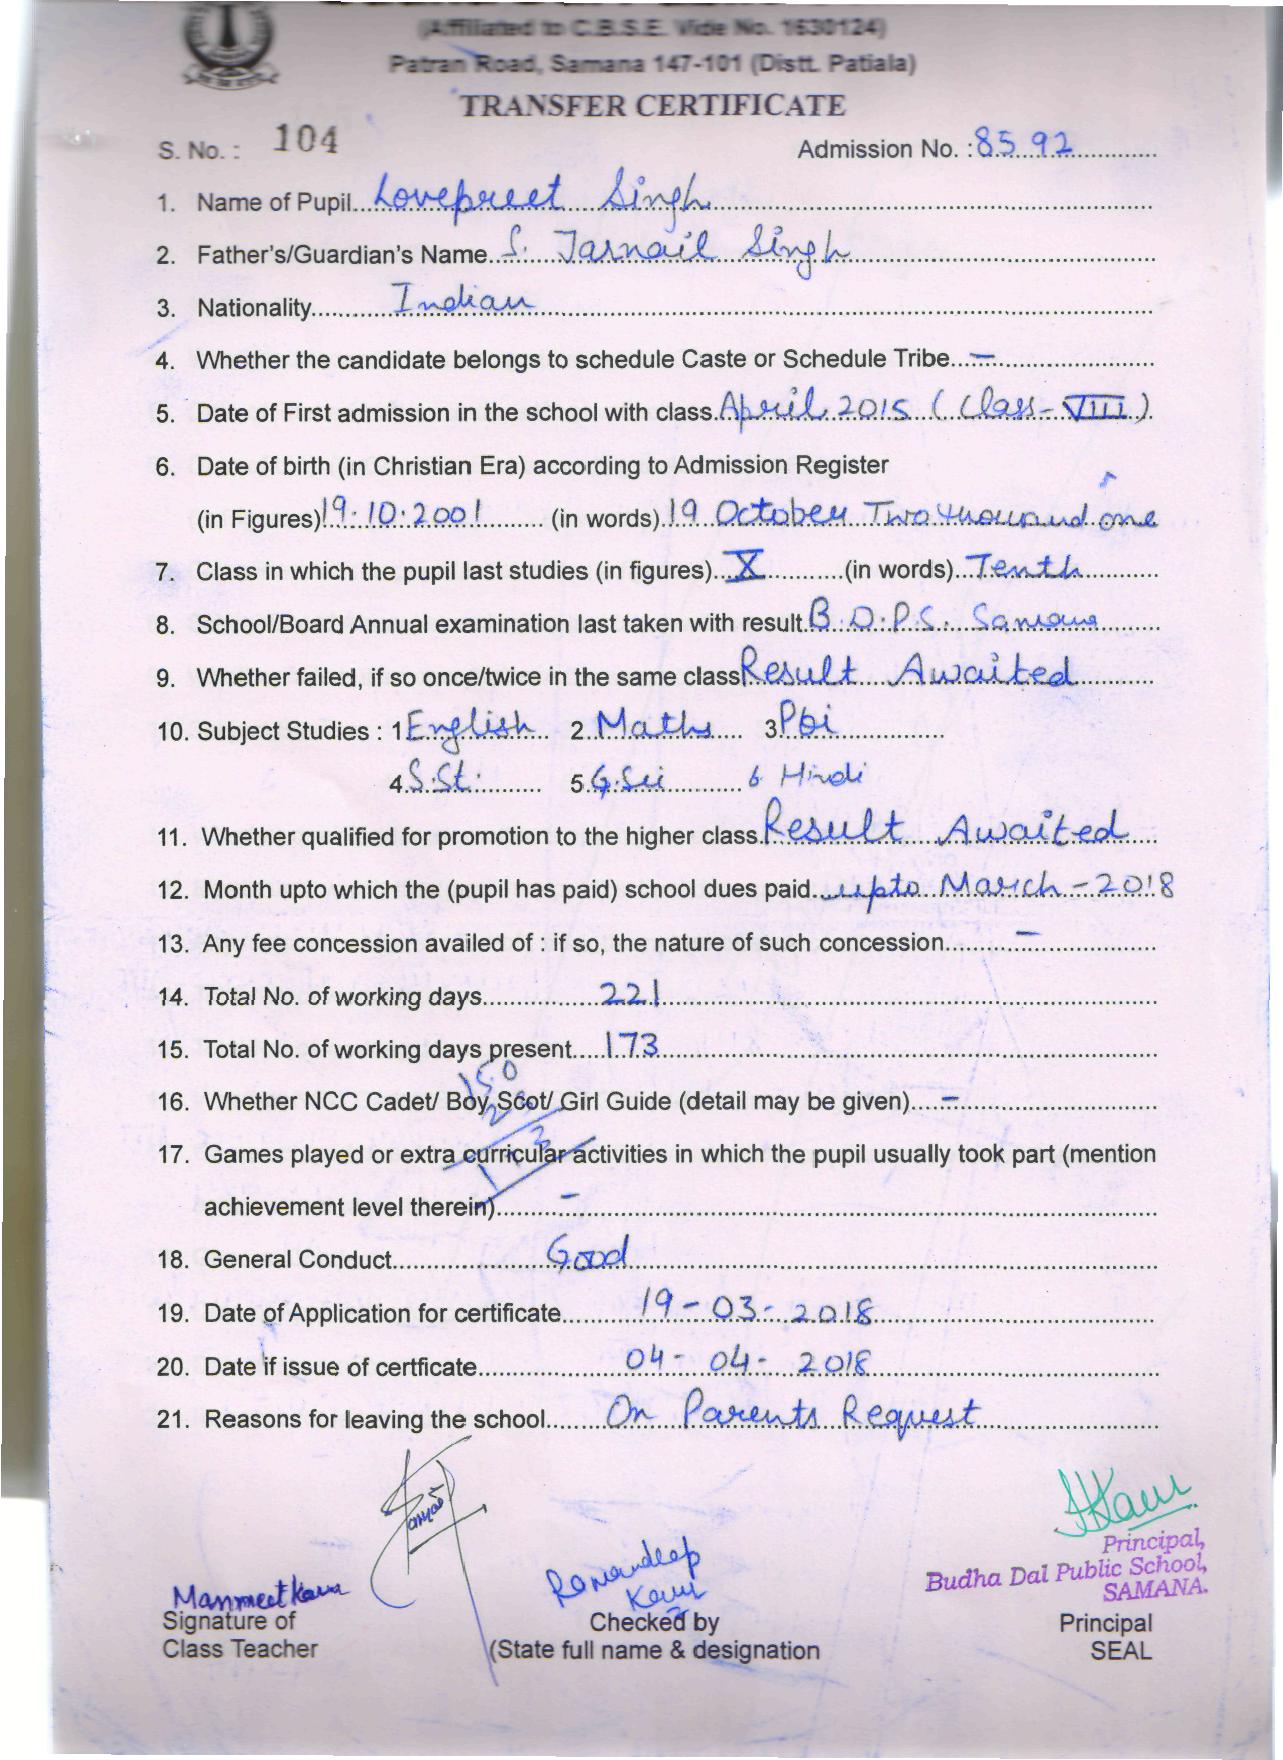 (Affiliated to C.B.S.E. Vide No. 1630124)
Patran Road, Samana 147-101 (Distt. Patiala)
TRANSFER CERTIFICATE
S. No. : 104 Admission No. : 8592
1. Name of Pupil Lovepreet Singh
2. Father's/Guardian's Name S. Jarnail Singh
3. Nationality Indian
4. Whether the candidate belongs to schedule Caste or Schedule Tribe –
5. Date of First admission in the school with class April 2015 (Class-VIII)
6. Date of birth (in Christian Era) according to Admission Register
(in Figures) 19.10.2001 (in words) 19 October Two thousand one
7. Class in which the pupil last studies (in figures) X (in words) Tenth
8. School/Board Annual examination last taken with result B.D.P.S. Samana
9. Whether failed, if so once/twice in the same class Result Awaited
10. Subject Studies : 1 English 2 Maths 3 Pbi
4 S.St. 5 G.Sci 6 Hindi
11. Whether qualified for promotion to the higher class Result Awaited
12. Month upto which the (pupil has paid) school dues paid upto March-2018
13. Any fee concession availed of : if so, the nature of such concession –
14. Total No. of working days 221
15. Total No. of working days present 173
150
16. Whether NCC Cadet/ Boy Scot/ Girl Guide (detail may be given) –
17. Games played or extra curricular activities in which the pupil usually took part (mention
achievement level therein) –
18. General Conduct Good
19. Date of Application for certificate 19-03-2018
20. Date if issue of certficate 04-04-2018
21. Reasons for leaving the school On Parents Request
Principal,
Budha Dal Public School,
SAMANA.
Manmeet Kaur Ramandeep Kaur
Signature of Checked by Principal
Class Teacher (State full name & designation SEAL